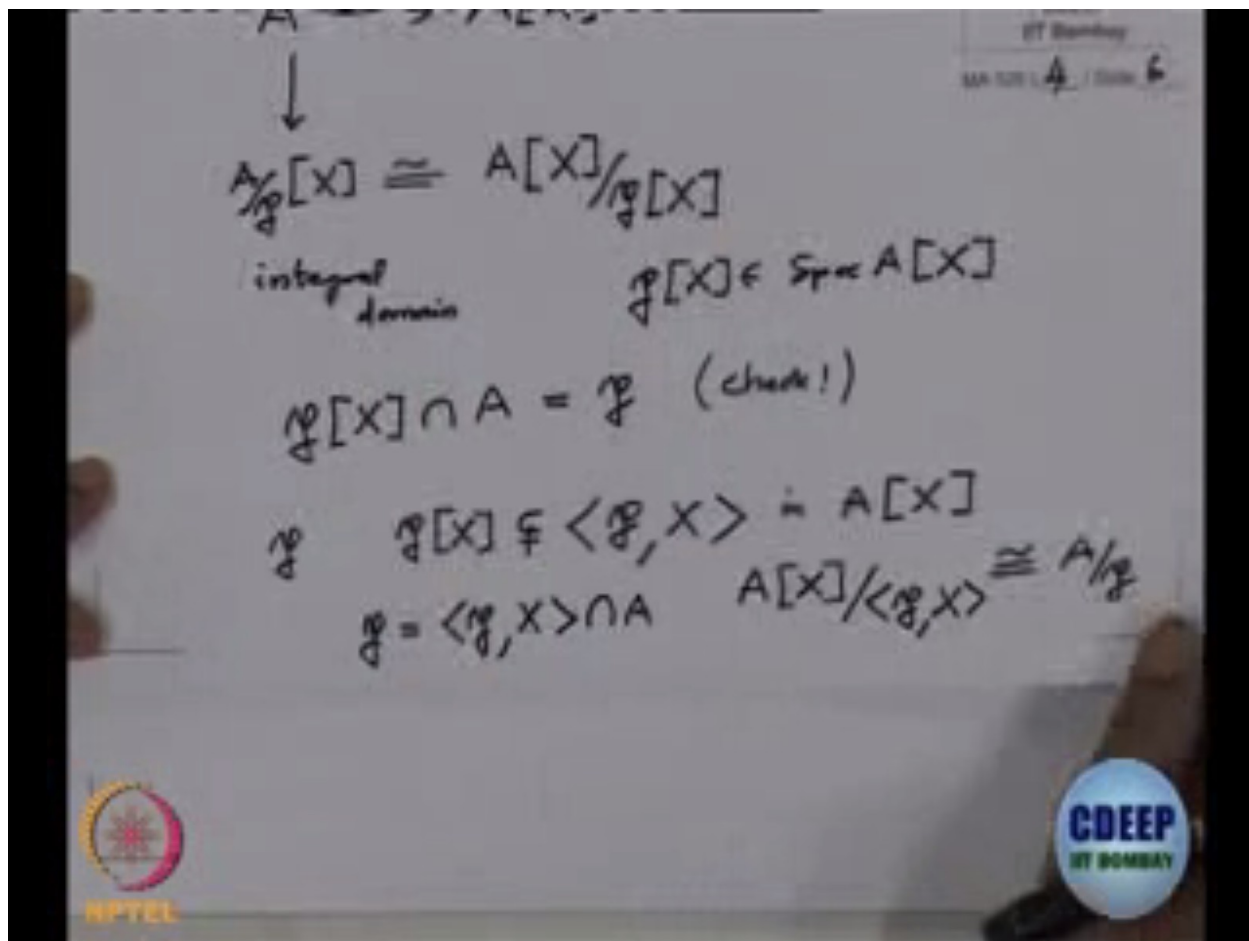 IIT Bombay
4 / Slide 6
A/𝔭[X] ≅ A[X]/𝔭[X]
integral
domain
𝔭[X] ∈ Spec A[X]
𝔭[X] ∩ A = 𝔭 (check!)
𝔭 𝔭[X] ⊊ <𝔭, X> in A[X]
𝔭 = <𝔭, X> ∩ A A[X]/<𝔭, X> ≅ A/𝔭
NPTEL
CDEEP
IIT BOMBAY